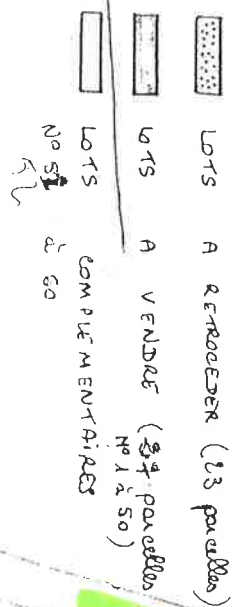 LOTS A RETROCEDER (23 parcelles)
LOTS A VENDRE (27 parcelles
N° 1 à 50)
LOTS COMPLEMENTAIRES
N° 51 à 60